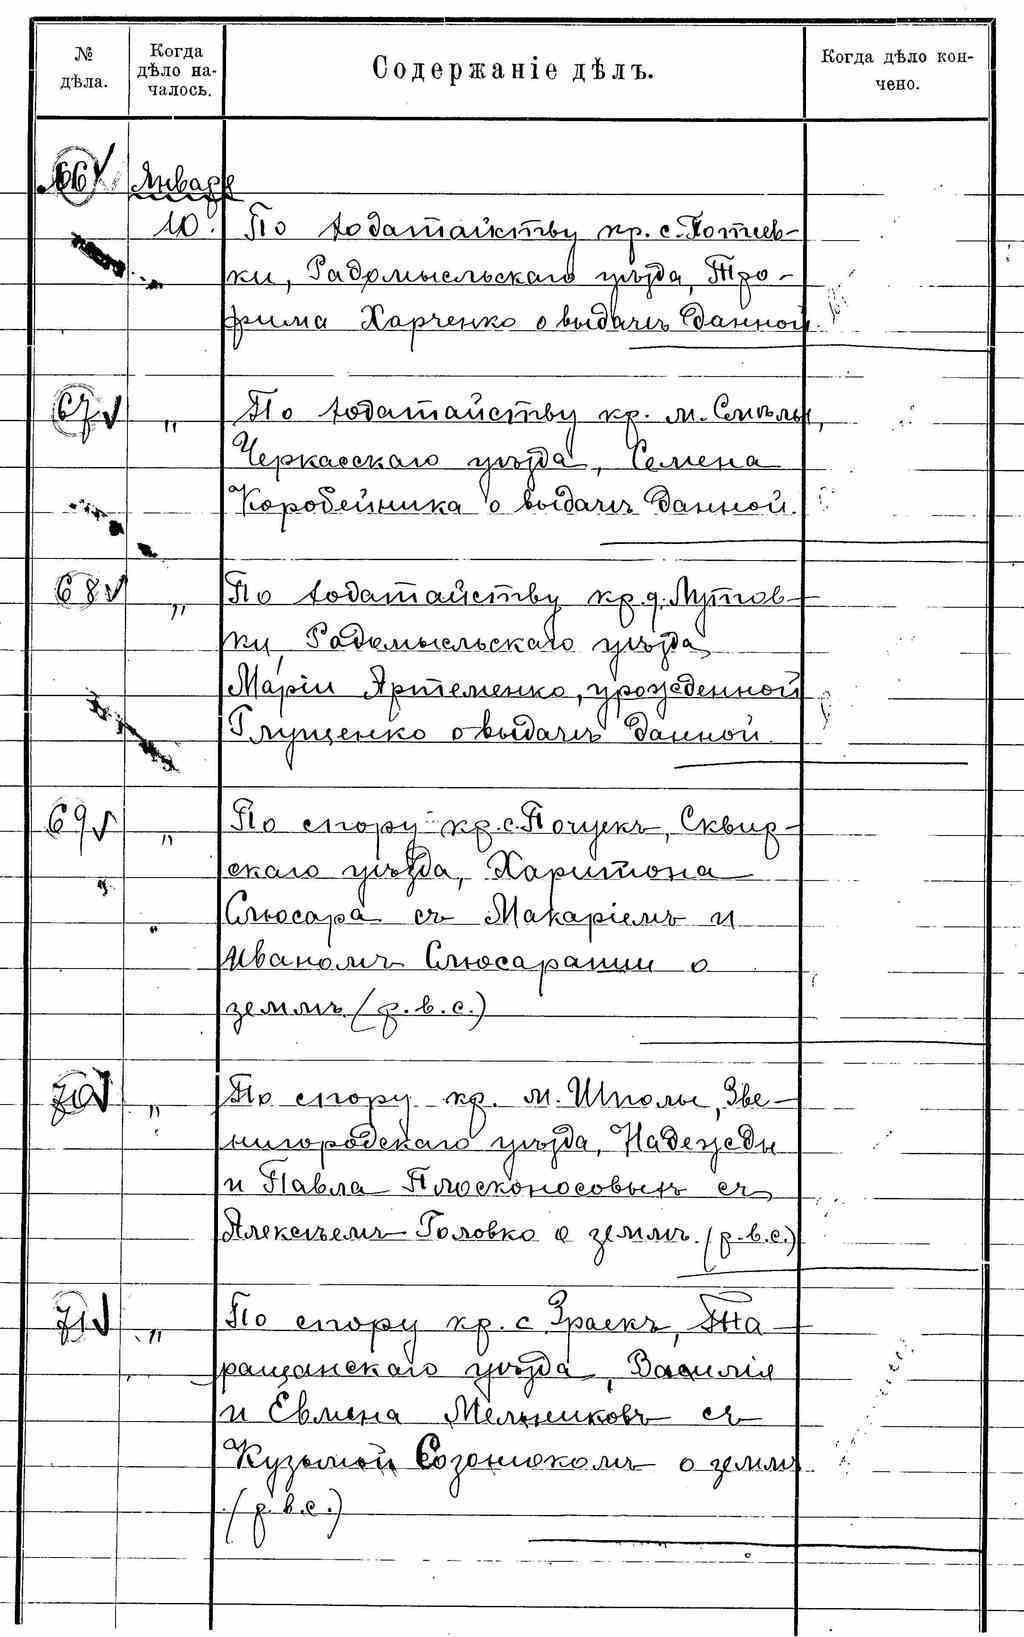 № дѣла.
Когда дѣло началось.
Содержаніе дѣлъ.
Когда дѣло кончено.
66 Января
10. По ходатайству кр. с. Потіев-
ки, Радомысльскаго уѣзда, Тро-
фима Харченко о выдачѣ данной
67 " По ходатайству кр. м. Смѣлы,
Черкасскаго уѣзда, Семена
Коробейника о выдачѣ данной.
68 " По ходатайству кр. д. Лутов-
ки, Радомысльскаго уѣзда
Маріи Артеменко, урожденной
Глущенко о выдачѣ данной.
69 " По спору кр. с. Почуекъ, Сквир-
скаго уѣзда, Харитона
Слюсара съ Макаріемъ и
Иваномъ Слюсарами о
землѣ (р. в. с.)
70 " По спору кр. м. Шполы, Зве-
нигородскаго уѣзда, Надежды
и Павла Плосконосовыхъ съ
Алексѣемъ Головко о землѣ. (р. в. с.)
71 " По спору кр. с. Зраекъ, Та-
ращанскаго уѣзда, Василія
и Евмена Мельниковъ съ
Кузьмой Созонюкомъ о землѣ
(р. в. с.)